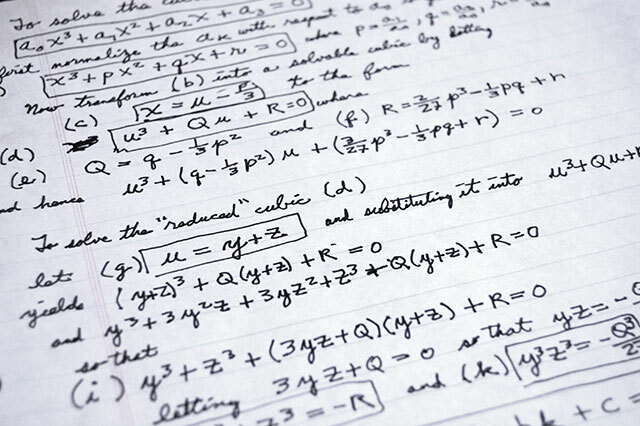 To solve the cubic
a₀x³ + a₁x² + a₂x + a₃ = 0
first normalize the aₖ with respect to a₀
x³ + px² + qx + r = 0 where p = a₁/a₀, q = a₂/a₀,
Now transform (b) into a solvable cubic by letting
(c) x = u - p/3 to the form
(d) u³ + Qu + R = 0 where
(e) Q = q - 1/3 p² and (f) R = 2/27 p³ - 1/3 pq + r
and hence u³ + (q - 1/3 p²) u + (2/27 p³ - 1/3 pq + r) = 0
To solve the "reduced" cubic (d)
let (g) u = y + z and substituting it into u³ + Qu +
yields (y+z)³ + Q(y+z) + R = 0
and y³ + 3y²z + 3yz² + z³ + Q(y+z) + R = 0
so that
(i) y³ + z³ + (3yz + Q)(y+z) + R = 0
letting 3yz + Q = 0 so that yz = -
z³ = -R and (k) y³z³ = -Q³/
+ C =